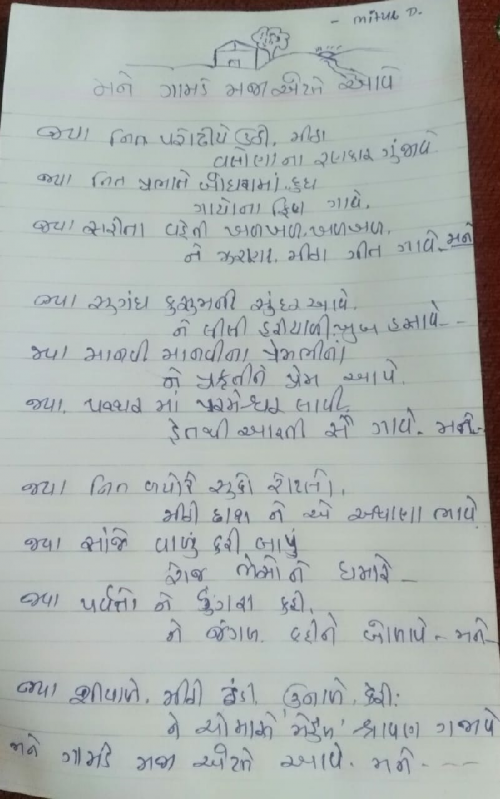 - મિતુલ D.
મને ગામડે મજા એટલે આવે
જ્યા નિત પરોઢીયે ઉઠી, મીઠા
વલોણાના રણકાર ગુંજાવે
જ્યા નિત પ્રભાતે બોઘરામાં દુધ
ગાયોના ફિણ ગાવે.
જ્યા સરીતા વહેતી ખળખળ, ખળખળ,
ને ઝરણા, મીઠા ગીત ગાવે. મને
જ્યા સુગંધ કુસુમની સુંદર આવે.
ને લીલી હરીયાળી ખુબ હસાવે - -
જ્યા માનવી માનવીના પ્રેમભીનાં
ને પ્રકૃતીને પ્રેમ આપે.
જ્યા. પથ્થર માં પરમેશ્વર લાવી
હેતથી આરતી સૌ ગાવે. મને-
જ્યા નિત બપોરે સુકો રોટલો,
મીઠી છાશ ને એ અથાણા ભાવે
જ્યા સાંજે વાળું કરી બાપુ
રોજ ભેંસોને ધમારે -
જ્યા પર્વતો ને ડુંગરા ફરી,
ને જંગળ. દરીને બોલાવે - મને-
જ્યા શીયાળે. મીઠી ઠંડી ઉનાળે. કેરી:
ને ચોમાસે 'મેહુલ' શ્રાવણ ગજાવે
મને ગામડે મજા એટલે આવે. મને - - - -